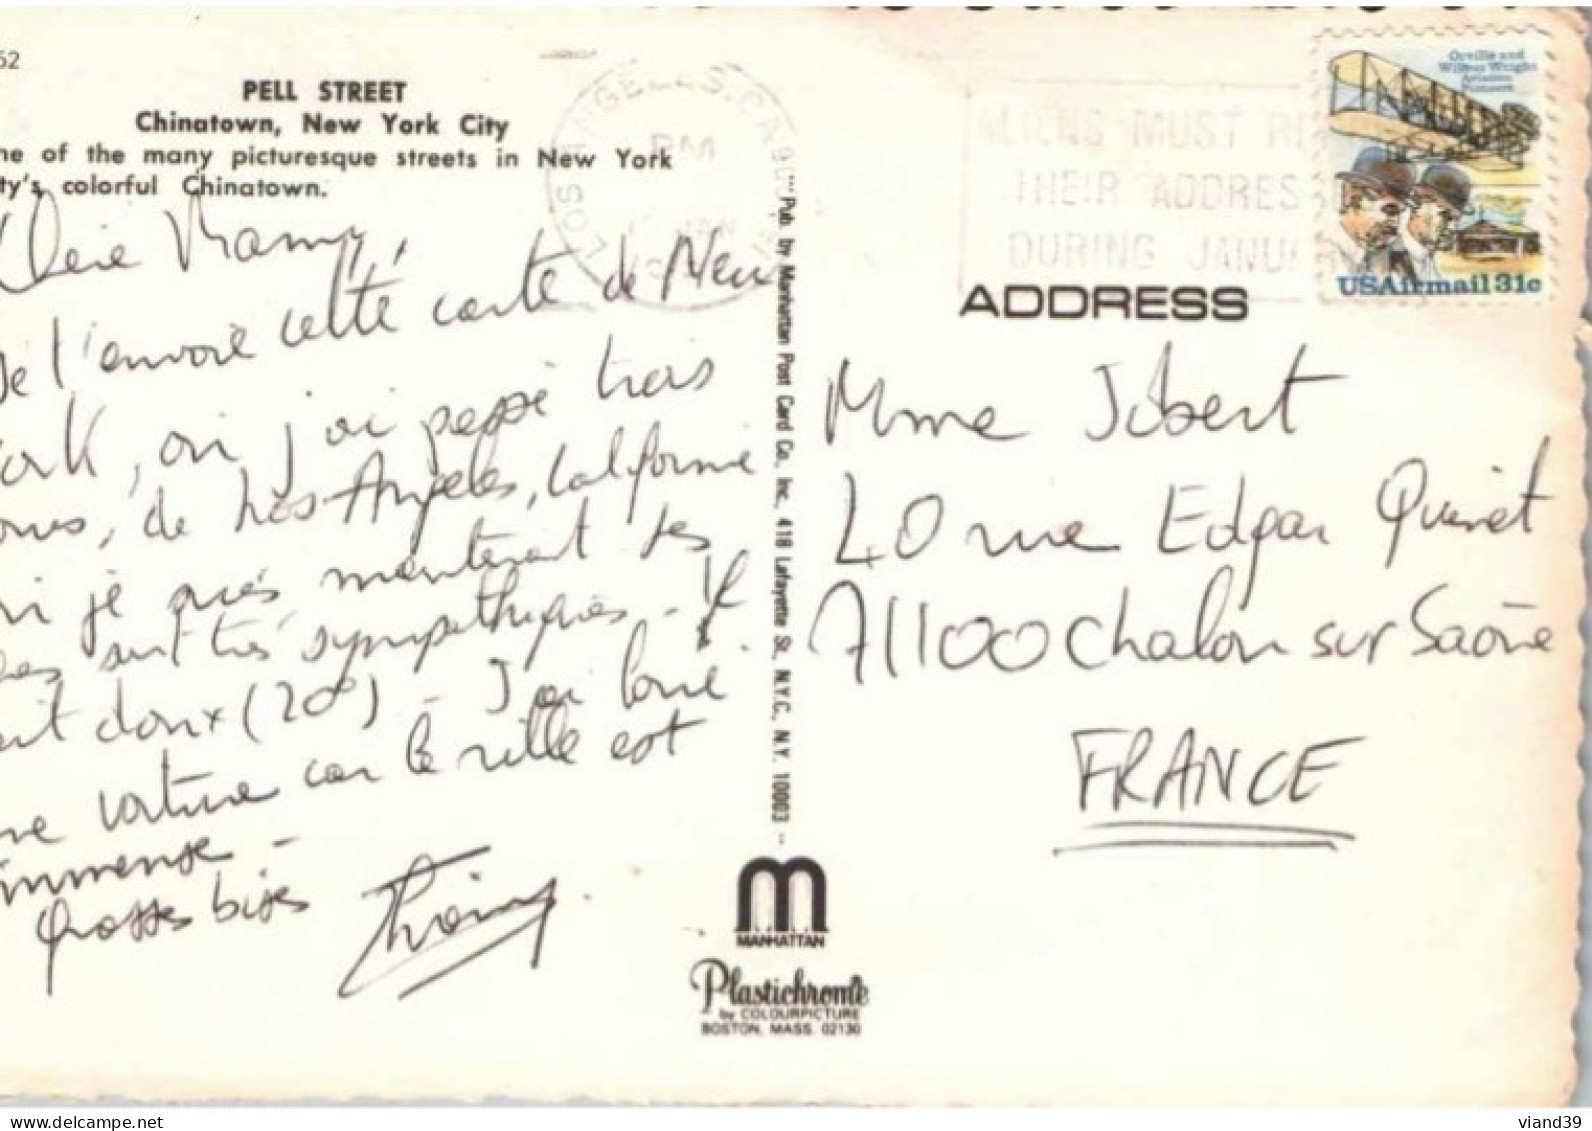 52
PELL STREET
Chinatown, New York City
ne of the many picturesque streets in New York
ty's colorful Chinatown.
LOS ANGELES, CA
PM
JAN
ALIENS MUST RE
THEIR ADDRES
DURING JANU
Orville and
Wilbur Wright
Aviation
Pioneers
USAirmail 31c
Chère Mamy,
Je t'envoie cette carte de New
York, où j'ai passé trois
jours, de Los Angeles, Californie
où je suis maintenant. Les
sont très sympathiques - Il
fait doux (20°) - J'ai loué
une voiture car la ville est
immense -
Grosses bises
ADDRESS
Mme Jobert
40 rue Edgar Quinet
71100 Chalon sur Saône
FRANCE
Pub. by Manhattan Post Card Co., Inc. 418 Lafayette St., N.Y.C., N.Y. 10003
MANHATTAN
Plastichrome
by COLOURPICTURE
BOSTON, MASS. 02130
www.delcampe.net
viand39